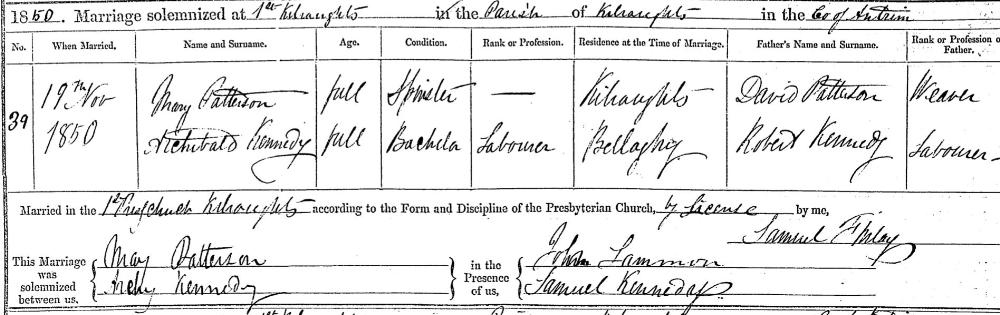 1850. Marriage solemnized at 1st Kilraughts in the Parish of Kilraughts in the Co of Antrim
No. When Married. Name and Surname. Age. Condition. Rank or Profession. Residence at the Time of Marriage. Father's Name and Surname. Rank or Profession of Father.
39 19th Nov 1850 Mary Patterson full Spinster — Kilraughts David Patterson Weaver
Archibald Kennedy full Bachelor Labourer Bellaghy Robert Kennedy Labourer
Married in the 1st Pres. church Kilraughts according to the Form and Discipline of the Presbyterian Church, by License by me,
Samuel Finlay
This Marriage was solemnized between us, { Mary Patterson } in the Presence of us, { John Lammon
Archy Kennedy Samuel Kennedy